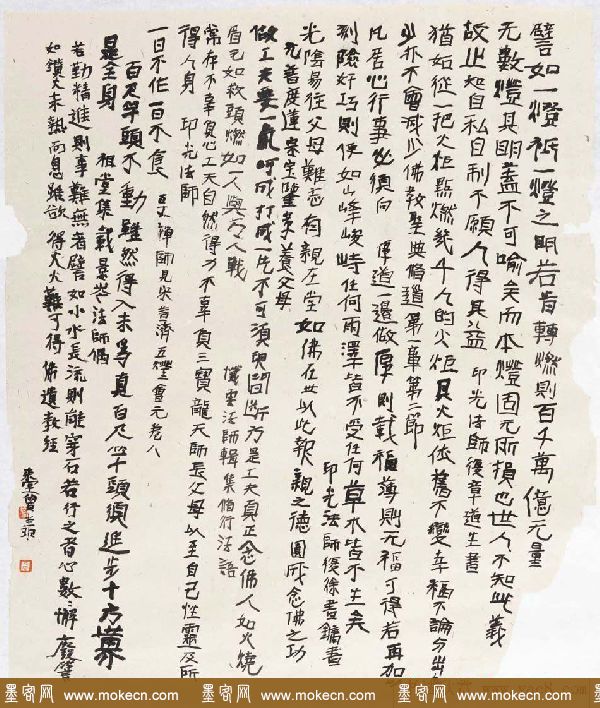 譬如一燈祇一燈之明若肯轉燃則百千萬億无量
无數燈其明蓋不可喻矣而本燈固无所損也世人不知此義
故止知自私自利不願人得其益 印光法師復章道生書
猶如從一把火炬點燃幾千人的火炬 其火炬依舊不變幸福不論分出
少亦不會減少佛教聖典修道第一章第二節
凡居心行事必須向厚道邊做厚則載福薄則无福可得若再加
刻險奸巧則便如山峰峻峙任何雨澤皆不受任何草木皆不生矣
印光法師復徐書鏞書
光陰易往父母難忘有親在堂如佛在世以此報親之德圓成念佛之功
元普度蓮宗寶鑒孝養父母
做工夫要一氣呵成打成一片不可須臾間斷方是工夫真正念佛人如火燒
眉毛如救頭燃如一人與萬人戰 懺雲法師輯集修行法語
常存不辜負心工夫自然得力不辜負三寶龍天師長父母以至自己性靈及所
得人身 印光法師
一日不作一日不食 百丈禪師見 普濟五燈會元卷八
百尺竿頭不動 雖然得入未為真百尺竿頭須進步十方世界
是全身 祖堂集載景岑法師偈
若勤精進則事難無者譬如小水長流則能穿石若行之者心數數懈廢譬
如鑽火未熱而息雖欲得火火難可得佛遺教經
墨客网 www.mokecn.com 墨客网 www.mokecn.com 墨客网 www.mokecn.com 墨客网